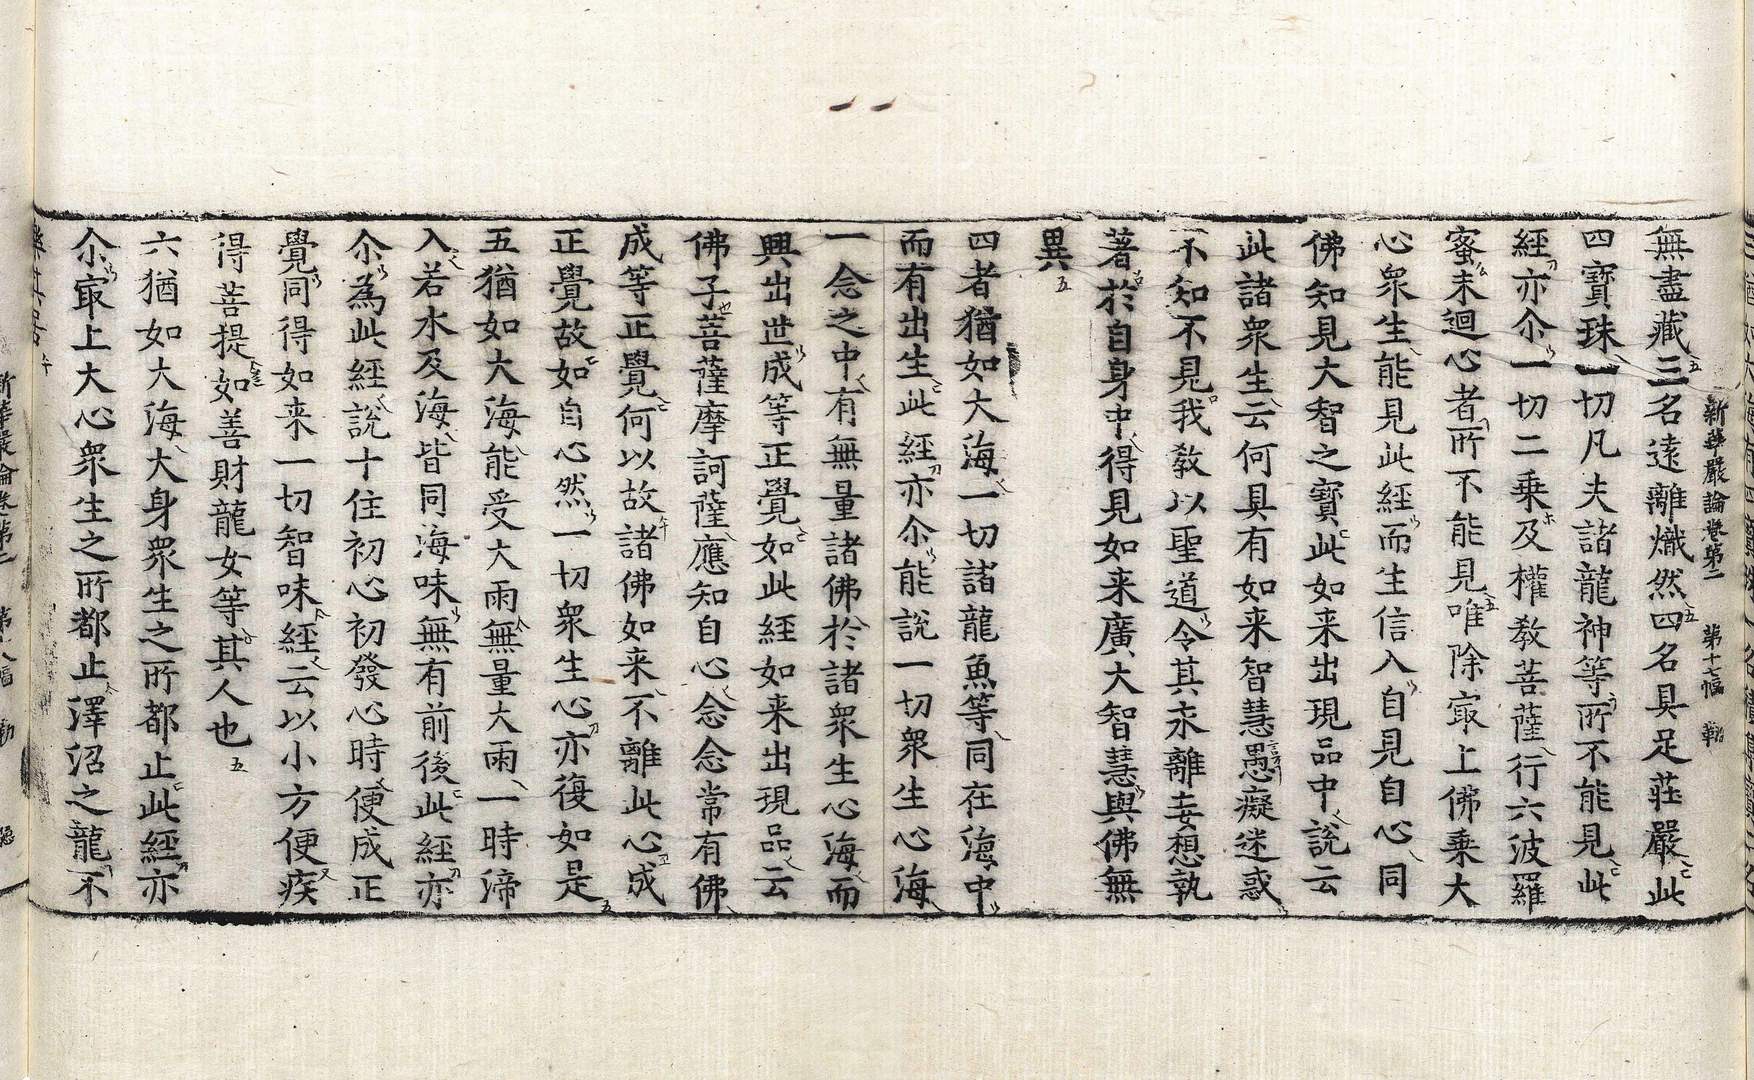 新華嚴論卷第二 第十七幅 勒
無盡藏三名遠離熾然四名具足莊嚴此
四寶珠一切凡夫諸龍神等所不能見此
經亦尒一切二乗及權教菩薩行六波羅
蜜未迴心者所不能見唯除㝡上佛乗大
心衆生能見此經而生信入自見自心同
佛知見大智之寶此如来出現品中說云
此諸衆生云何具有如来智慧愚癡迷惑
不知不見我教以聖道令其永離妄想執
著於自身中得見如来廣大智慧與佛無
異
四者猶如大海一切諸龍魚等同在海中
而有出生此經亦尒能說一切衆生心海
一念之中有無量諸佛於諸衆生心海而
興出世成等正覺如此經如来出現品云
佛子菩薩摩訶薩應知自心念念常有佛
成等正覺何以故諸佛如来不離此心成
正覺故如自心然一切衆生心亦復如是
五猶如大海能受大雨無量大雨一時渧
入若水及海皆同海味無有前後此經亦
尒為此經說十住初心初發心時便成正
覺同得如来一切智味經云以小方便疾
得菩提如善財龍女等其人也
六猶如大海大身衆生之所都止此經亦
尒㝡上大心衆生之所都止澤沼之龍不